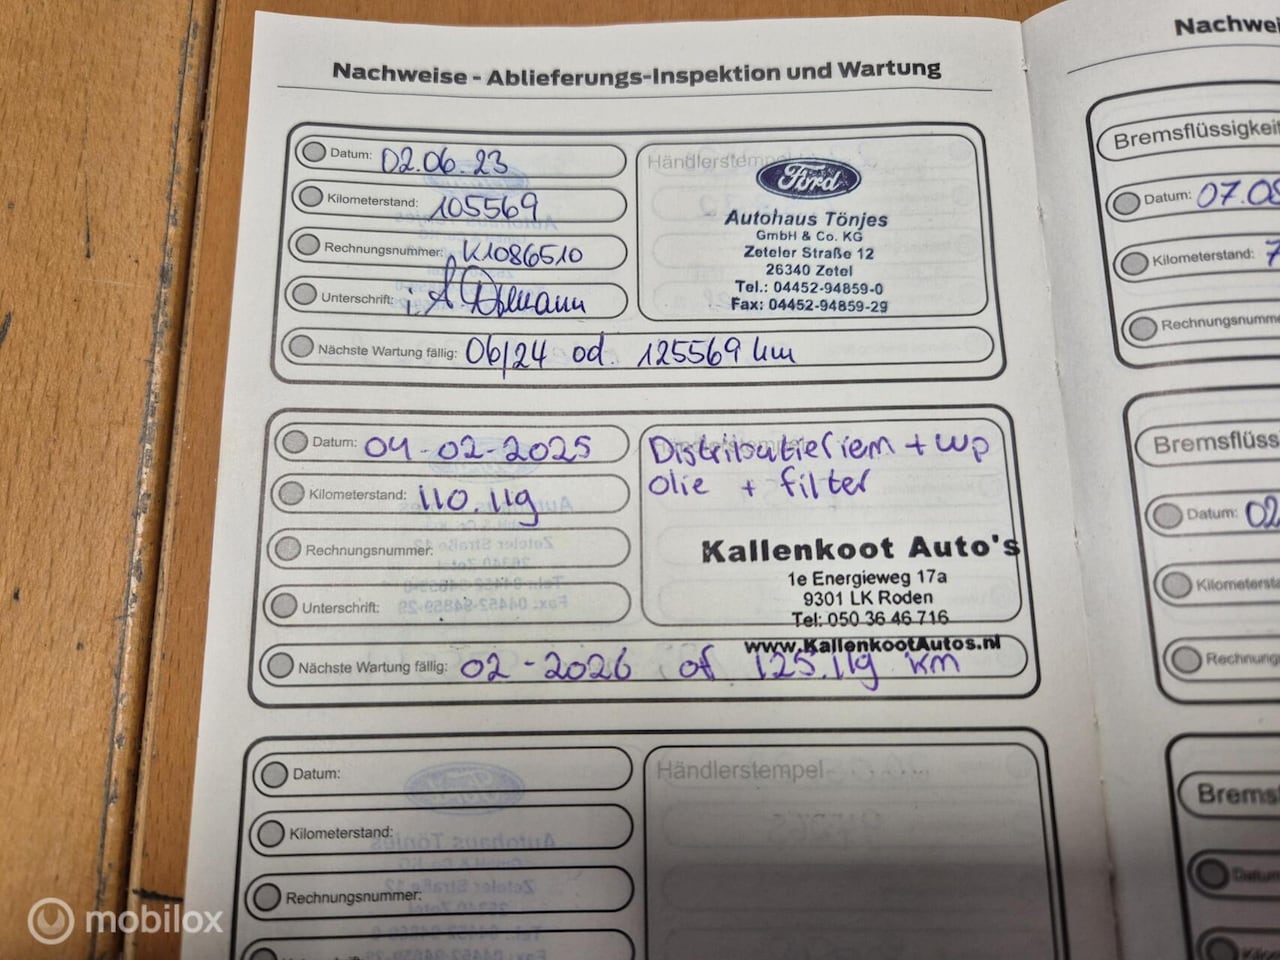 Nachweise - Ablieferungs-Inspektion und Wartung
Datum: 02.06.23
Kilometerstand: 105569
Rechnungsnummer: K1086510
Unterschrift: i.A
Nächste Wartung fällig: 06/24 od. 125569 km
Händlerstempel
Ford
Autohaus Tönjes
GmbH & Co. KG
Zeteler Straße 12
26340 Zetel
Tel.: 04452-94859-0
Fax: 04452-94859-29
Datum: 04-02-2025
Kilometerstand: 110.119
Rechnungsnummer:
Unterschrift:
Nächste Wartung fällig: 02-2026 of 125.119 km
Distributieriem + wp
olie + filter
Kallenkoot Auto's
1e Energieweg 17a
9301 LK Roden
Tel: 050 36 46 716
www.KallenkootAutos.nl
Datum:
Kilometerstand:
Rechnungsnummer:
Händlerstempel
Bremsflüssigkeit
Datum: 07.
Kilometerstand: 7
Datum: 02
mobilox